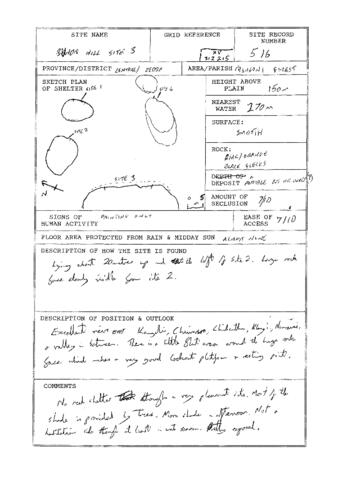 SITE NAME
GRID REFERENCE
SITE RECORD
NUMBER
HILL SITE 3
XV
312 215
5/6
PROVINCE/DISTRICT CENTRAL / DEDZA
AREA/PARISH FOREST
SKETCH PLAN
OF SHELTER SITE 1
HEIGHT ABOVE
PLAIN 150m
NEAREST
WATER 270m
SITE 2
SURFACE:
SMOOTH
ROCK:
SITE 3
DEPOSIT
AMOUNT OF
SECLUSION 7/10
SIGNS OF
HUMAN ACTIVITY
PAINTING ONLY
EASE OF
ACCESS 7/10
FLOOR AREA PROTECTED FROM RAIN & MIDDAY SUN ALMOST NONE
DESCRIPTION OF HOW THE SITE IS FOUND
Lying about 20 metres up and to the left of site 2. Large rock
face clearly visible from site 2.
DESCRIPTION OF POSITION & OUTLOOK
Excellent views over
a valley in between. There is a little flat area around the large rock
face which makes a very good lookout platform & resting point.
COMMENTS
No real shelter though a very pleasant site. Most of the
shade is provided by trees. More shade in afternoon. Not a
habitation site though at least in wet season. exposed.